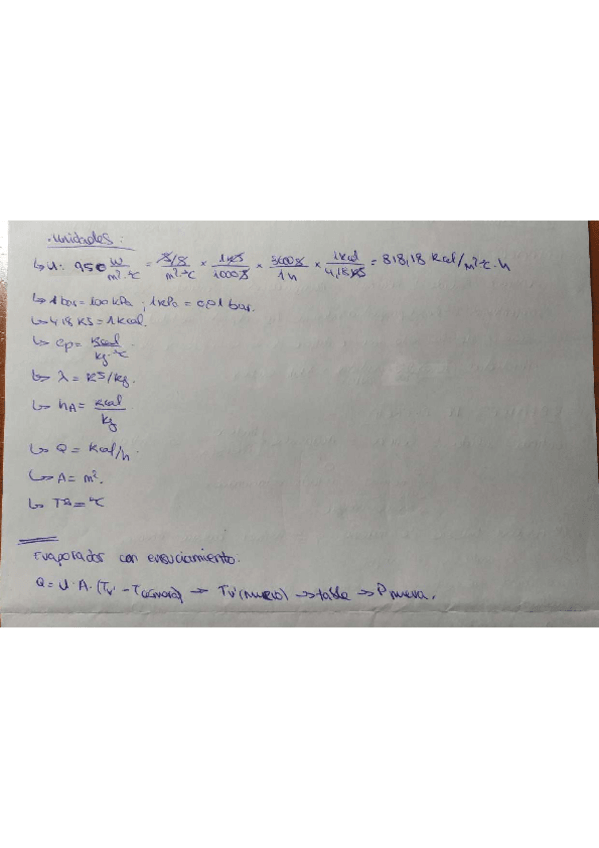 ·unidades:
↳ U: 950 W/m²·°C = J/s/m²·°C × 1KJ/1000J × 3600s/1h × 1kcal/4,18KJ = 818,18 Kcal/m²·°C·h
↳ 1 bar = 100 kPa ; 1kPa = 0,01 bar.
↳ 4,18 KJ = 1 Kcal.
↳ Cp = kcal/kg·°C.
↳ λ = KJ/kg.
↳ hA = kcal/kg
↳ Q = Kcal/h.
↳ A = m².
↳ = °C
Evaporador con ensuciamiento.
Q = U·A·(Tv' - ) → Tv'(nuevo) → tabla → P nueva.